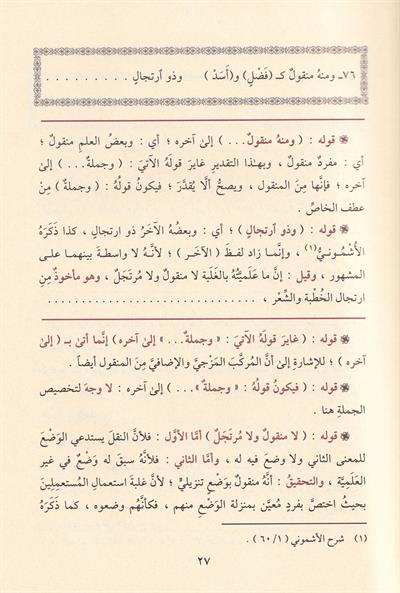 ٧٦ـ ومنهُ منقولٌ كـ (فَضْلٍ) و(أَسَدْ) وذو ٱرتجالٍ . . . . . . . . .
قوله : ( ومنهُ منقولٌ... ) إلىٰ آخره ؛ أي : وبعضُ العلمِ منقولٌ ؛
أي : مفردٌ منقولٌ ، وبهٰذا التقديرِ غايَرَ قولَهُ الآتيَ : ( وجملةٌ... ) إلىٰ
آخره ؛ فإنَّها مِنَ المنقول ، ويصحُّ ألَّا يُقدَّرَ ؛ فيكونُ قولُهُ : ( وجملةٌ ) مِنْ
عطف الخاصِّ .
قوله : ( وذو ٱرتجالٍ ) ؛ أي : وبعضُهُ الآخَرُ ذو ارتجال ، كذا ذَكَرَهُ
الأُشْمُونيُّ(١) ، وإنَّما زاد لفظَ ( الآخَر ) ؛ لأنَّهُ لا واسطةَ بينهما على
المشهور ، وقيل : إنَّ ما عَلَميَّتُهُ بالغَلَبة لا منقولٌ ولا مُرتجَلٌ ، وهو مأخوذٌ مِنِ
ارتجال الخُطْبة والشِّعْر ، . . . . . . . . . . . . . . . . . . . . . . . . . . .
قوله : ( غايَرَ قولَهُ الآتيَ : « وجملةٌ... » إلىٰ آخره) إنَّما أتىٰ بـ ( إلىٰ
آخره ) ؛ للإشارةِ إلىٰ أنَّ المُركَّبَ المَزْجيَّ والإضافيَّ مِنَ المنقول أيضاً .
قوله : ( فيكونُ قولُهُ : « وجملةٌ»... ) إلىٰ آخره : لا وجهَ لتخصيص
الجملةِ هنا .
قوله : ( لا منقولٌ ولا مُرتَجَلٌ ) أمَّا الأوَّل : فلأنَّ النقلَ يستدعي الوَضْعَ
للمعنى الثاني ولا وضعَ فيه له ، وأمَّا الثاني : فلأنَّهُ سبق له وَضْعٌ في غير
العَلَميَّة ، والتحقيقُ : أنَّهُ منقولٌ بوَضْعٍ تنزيليٍّ ؛ لأنَّ غلبةَ استعمالِ المُستعمِلِينَ
بحيثُ اختصَّ بفردٍ مُعيَّن بمنزلة الوَضْع منهم ، فكأنَّهُم وضعوه ، كما ذَكَرَهُ
(١) شرح الأشموني (٦٠/١) .
٢٧